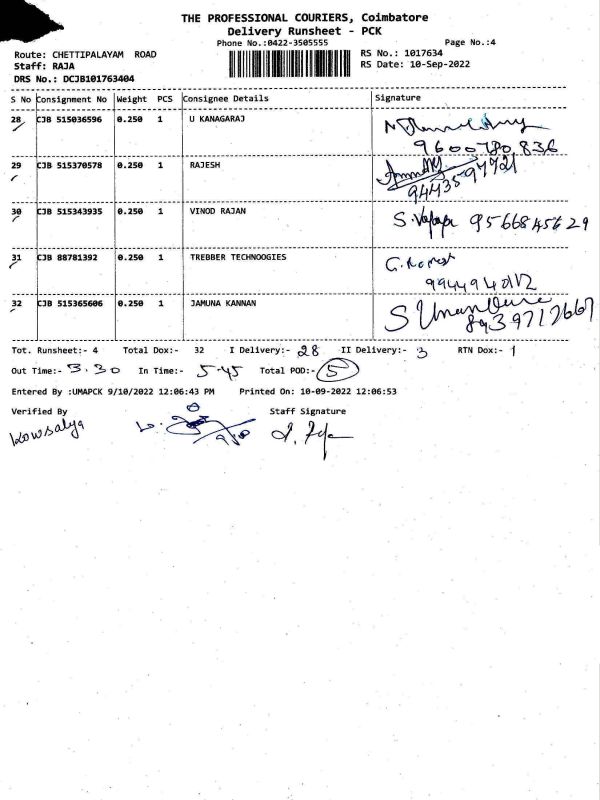 THE PROFESSIONAL COURIERS, Coimbatore
Delivery Runsheet - PCK
Phone No.:0422-3505555 Page No.:4
Route: CHETTIPALAYAM ROAD RS No.: 1017634
Staff: RAJA RS Date: 10-Sep-2022
DRS No.: DCJB101763404
S No Consignment No Weight PCS Consignee Details Signature
28 CJB 515036596 0.250 1 U KANAGARAJ
9600780836
29 CJB 515370578 0.250 1 RAJESH
30 CJB 515343935 0.250 1 VINOD RAJAN S. 9566845629
31 CJB 88781392 0.250 1 TREBBER TECHNOOGIES G. Ramesh
32 CJB 515365606 0.250 1 JAMUNA KANNAN S
8939712667
Tot. Runsheet:- 4 Total Dox:- 32 I Delivery:- 28 II Delivery:- 3 RTN Dox:- 1
Out Time:- 3.30 In Time:- 5-45 Total POD:- 5
Entered By :UMAPCK 9/10/2022 12:06:43 PM Printed On: 10-09-2022 12:06:53
Verified By Staff Signature
Kowsalya